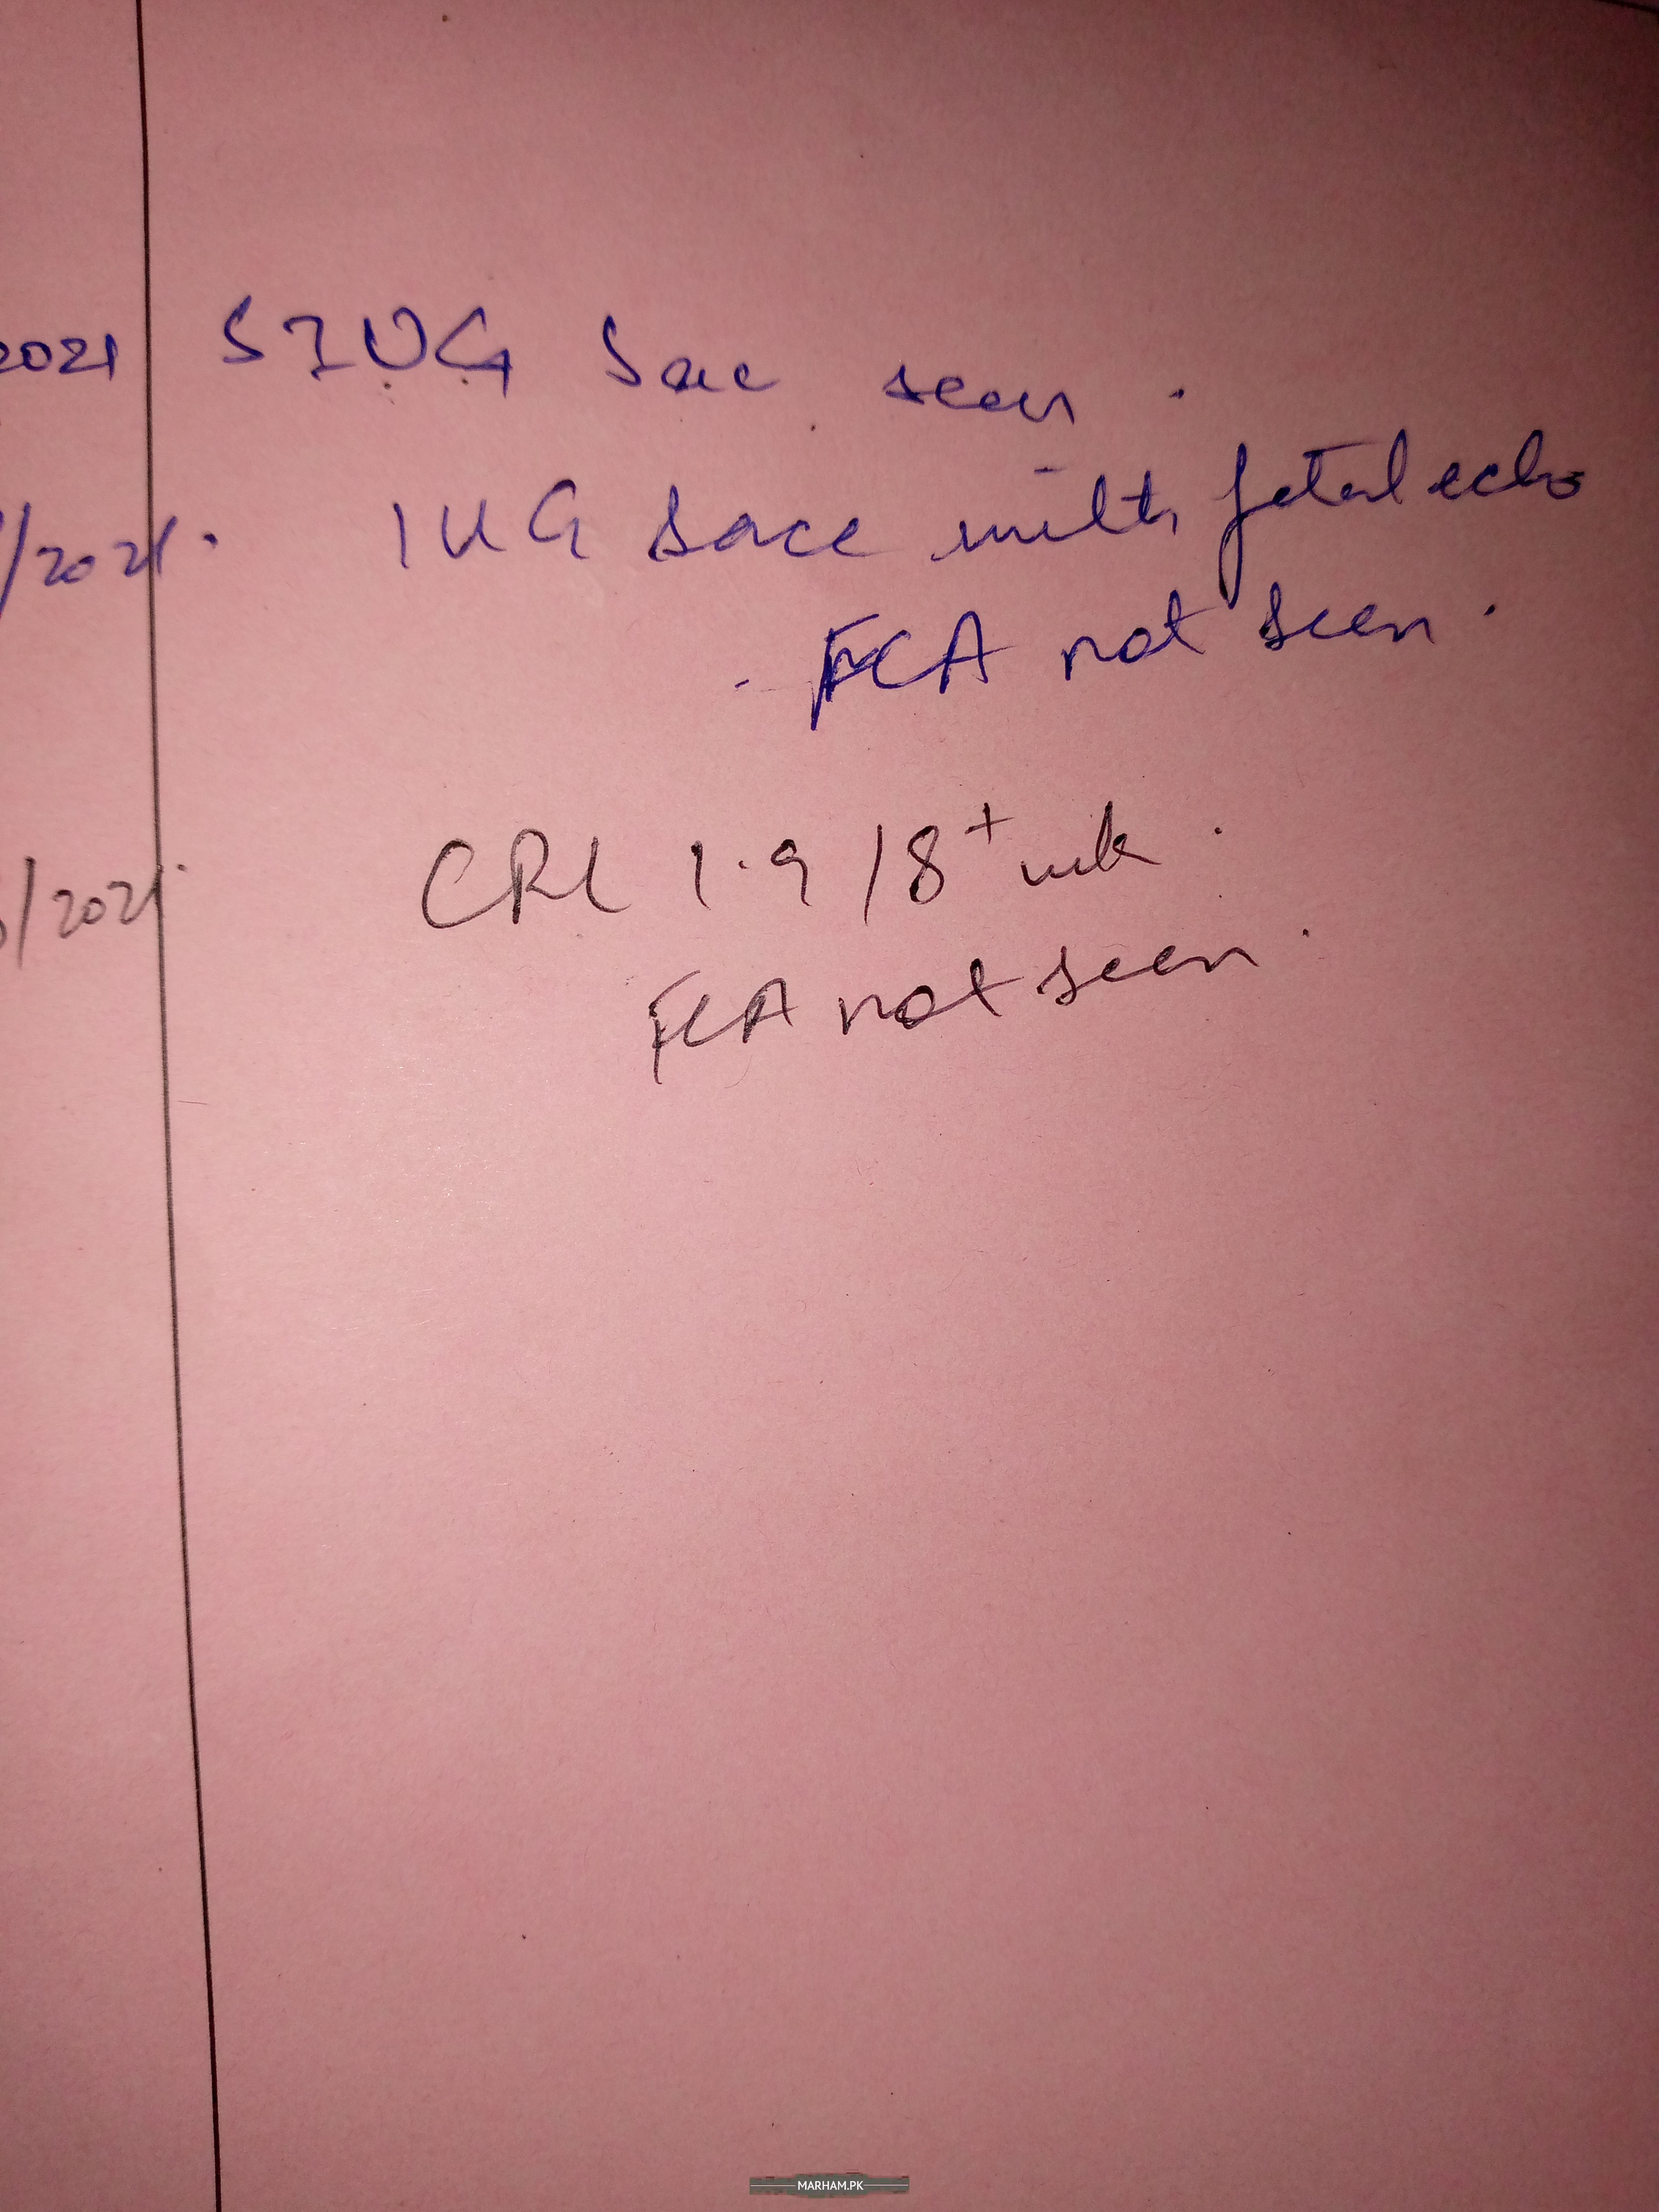 2021 SIUG Sac seen.
/2021. IUG Sacc with fetal echo
- FCA not seen.
/2021. CRL 1.9 / 8+ wk.
FCA not seen.
MARHAM.PK